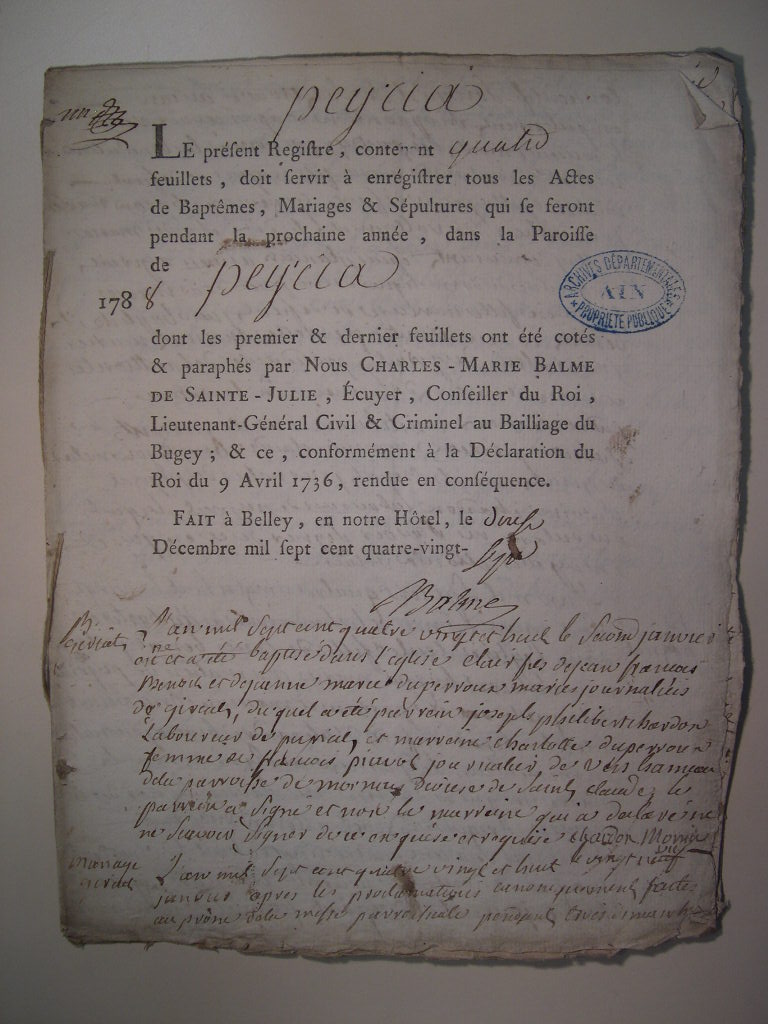 peyria
LE préſent Regiſtre, contenant quatre
feuillets, doit ſervir à enrégiſtrer tous les Actes
de Baptêmes, Mariages & Sépultures qui ſe feront
pendant la prochaine année, dans la Paroiſſe
de peyria
1788
ARCHIVES DÉPARTEMENTALES
AIN
PROPRIÉTÉ PUBLIQUE
dont les premier & dernier feuillets ont été cotés
& paraphés par Nous CHARLES-MARIE BALME
DE SAINTE-JULIE, Écuyer, Conſeiller du Roi,
Lieutenant-Général Civil & Criminel au Bailliage du
Bugey; & ce, conformément à la Déclaration du
Roi du 9 Avril 1736, rendue en conſéquence.
FAIT à Belley, en notre Hôtel, le douze
Décembre mil ſept cent quatre-vingt-
sept
Balme
L'an mil sept cent quatre vingt et huit le second janvier
est né et a été baptisé dans l'eglise clair fils de jean francois
Benoit et de jeanne marie duperroux mariés journaliers
de girial, du quel a été parrein joseph philibert chardon
Laboureur de, et marreine charlotte duperroux
femme de francois journalier de hameau
de la parroisse de mornay Diocese de Saint claude, le
parrein a signé et non la marreine qui a declaré ne
ne scavoir signer de ce enquise et requise chardon
mariage L'an mil sept cent quatre vingt et huit le vingt neuf
janvier après les proclamations canoniquement faites
au prône de la messe parroissiale pendant trois dimanches